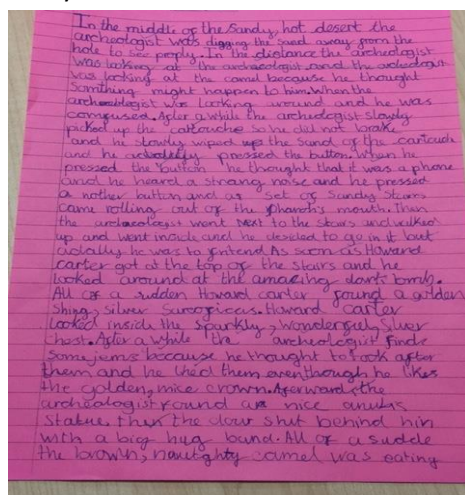 In the middle of the sandy, hot desert the
archeologist was digging the sand away from the
hole to see proply. In the distance the archeologist
was looking at the archaeologist and the archeologist
was looking at the camel because he thought
somthing might happen to him. When the
archeologist was looking around and he was
compused. After a while the archeologist slowly
picked up the cartouche so he did not brake
and he slowly wiped up the sand of the cartouch
and he pressed the button. When he
pressed the button he thought that it was a phone
and he heard a strang noise and he pressed
a nother button and as set of sandy stears
came rolling out of the pharoh's mouth. Then
the archeologist went next to the stairs and walked
up and went inside and he to go in it but
he was to fritend. As soon as Howard
carter got at the top of the stairs and he
looked around at the amazing tomb.
All of a sudden Howard carter found a golden
shing, silver Howard carter
looked inside the sparkly, wonderful, silver
chest. After a while the archeologist finds
some jems because he thought to look after
them and he liked them even though he likes
the golden, nice crown. Afterwards the
archeologist found a nice
statue. then the dour shut behind him
with a big hug band. All of a suddle
the brown, naughty camel was eating